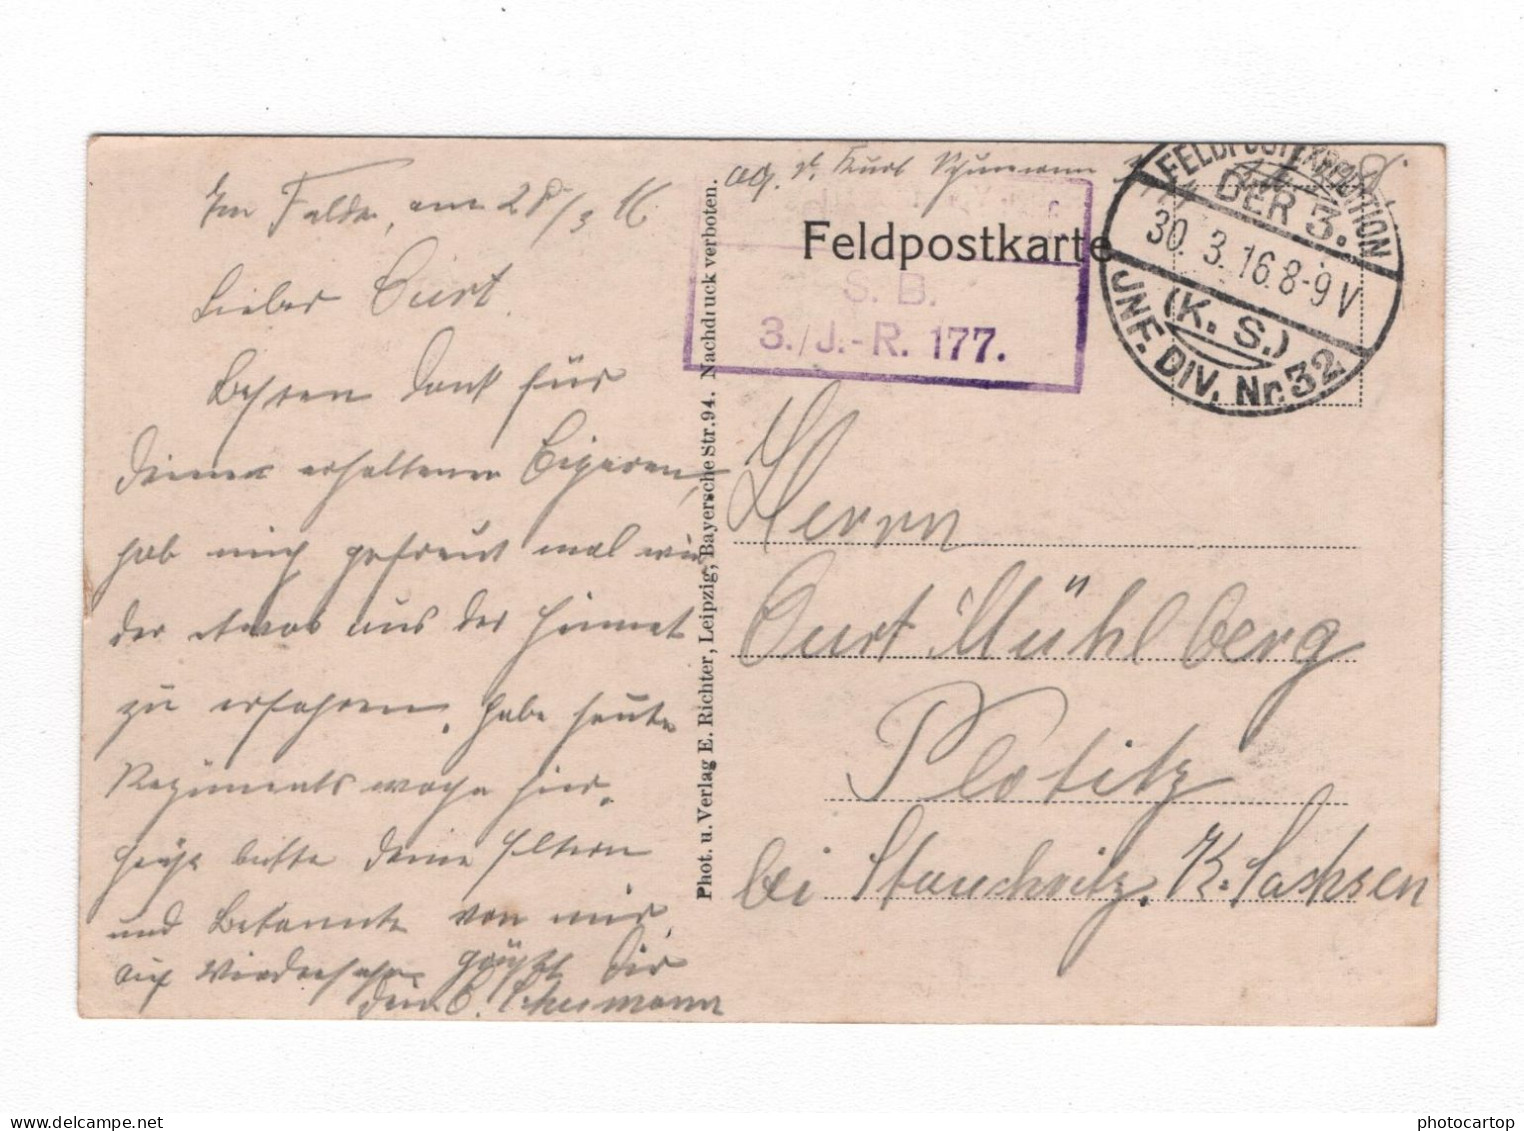 Im Felde, am 28/3 16
Lieber Curt.
Besten Dank für
deine erhaltenen Cigaren,
hab mich gefreut mal wie
der etwas aus der Heimat
zu erfahren, habe heute
Regiments wache hier.
Grüße bitte deine Eltern
und Bekannte von mir,
Auf Wiedersehen grüßt Dir
dein C. Schumann
Phot. u. Verlag E. Richter, Leipzig, Bayersche Str. 94. Nachdruck verboten.
Kurt Schumann
Feldpostkarte
S. B.
3./J.-R. 177.
FELDPOSTEXPEDITION
DER 3.
30. 3. 16. 8-9 V
(K. S.)
INF. DIV. Nr. 32
Herrn
Curt Mühlberg
Plotitz
bei Stauchitz. K. Sachsen
photocartop